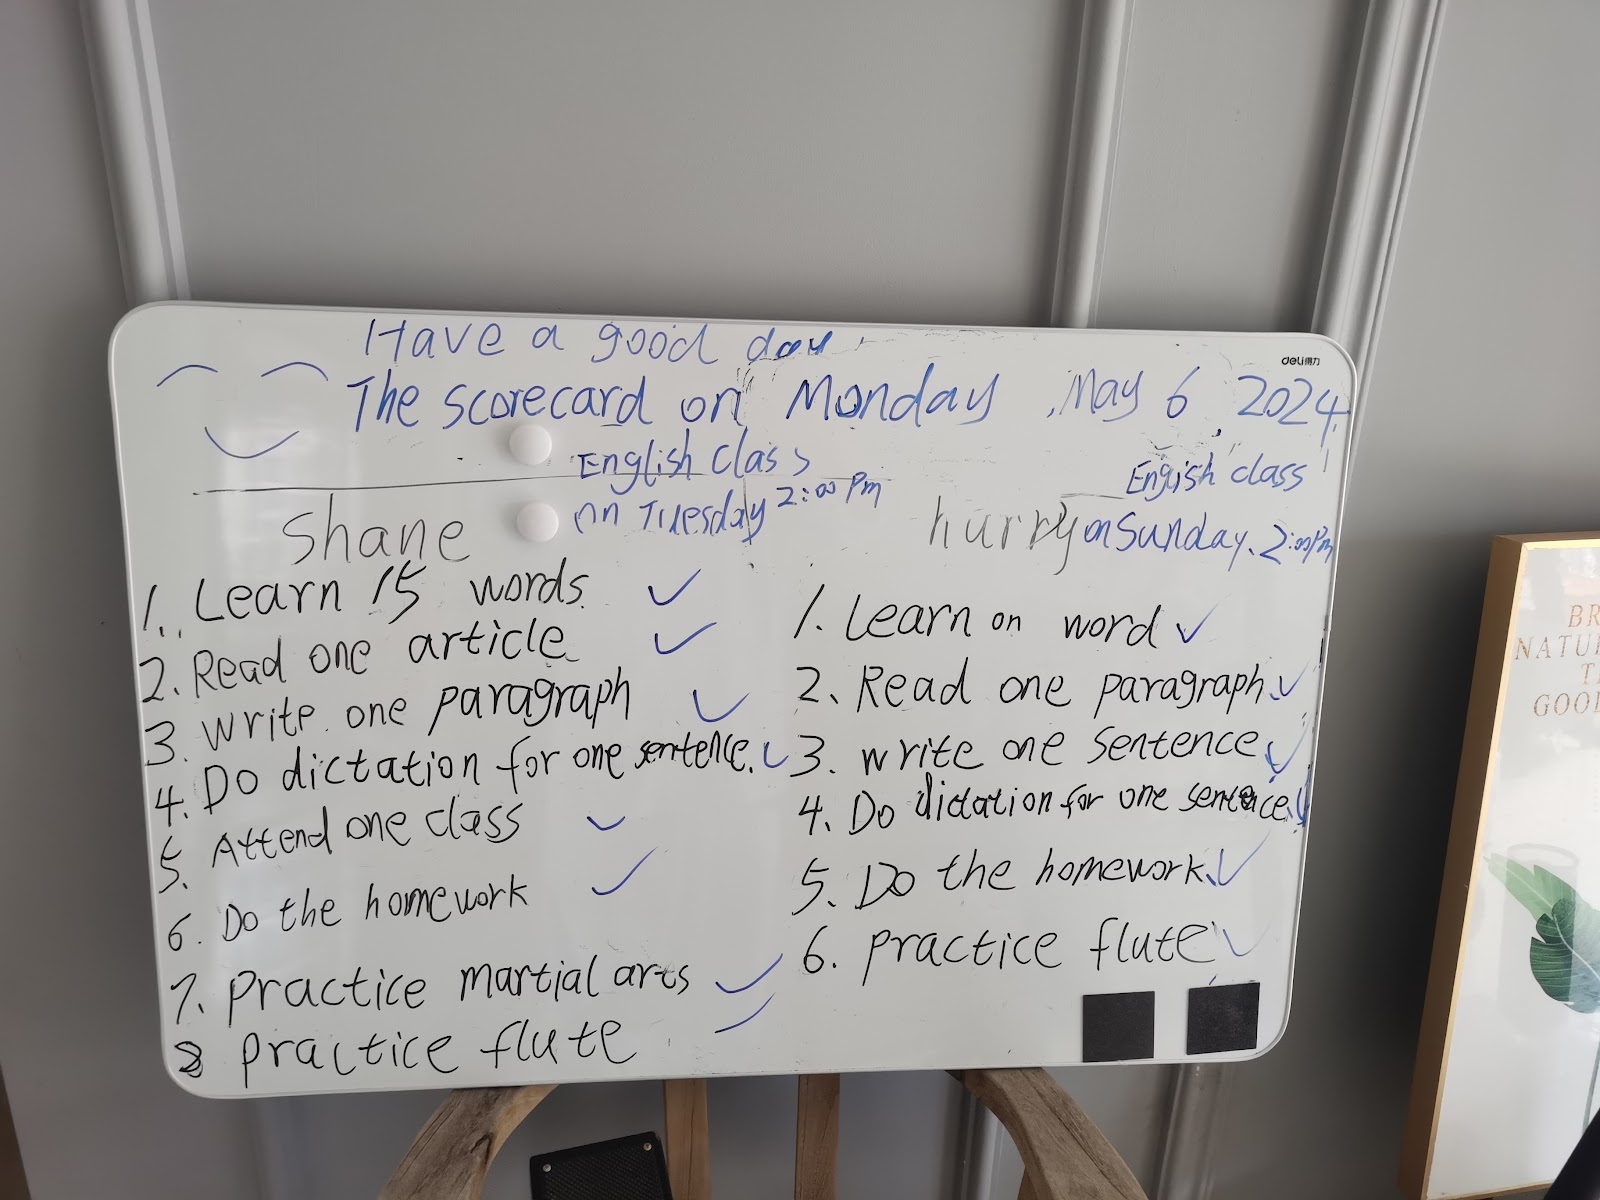 Have a good day.
deli得力
The scorecard on Monday, May 6, 2024.
English class
on Tuesday 2:00 Pm
Engish class
on Sunday. 2:00 Pm
Shane
1. Learn 15 words.
2. Read one article
3. write one paragraph
4. Do dictation for one sentence.
5. Attend one class
6. Do the homework
7. practice martial arts
8 practice flute
hurry
1. Learn on word
2. Read one paragraph.
3. write one sentence
4. Do dictation for one sentence.
5. Do the homework.
6. practice flute
BR
NATU
T
GOO